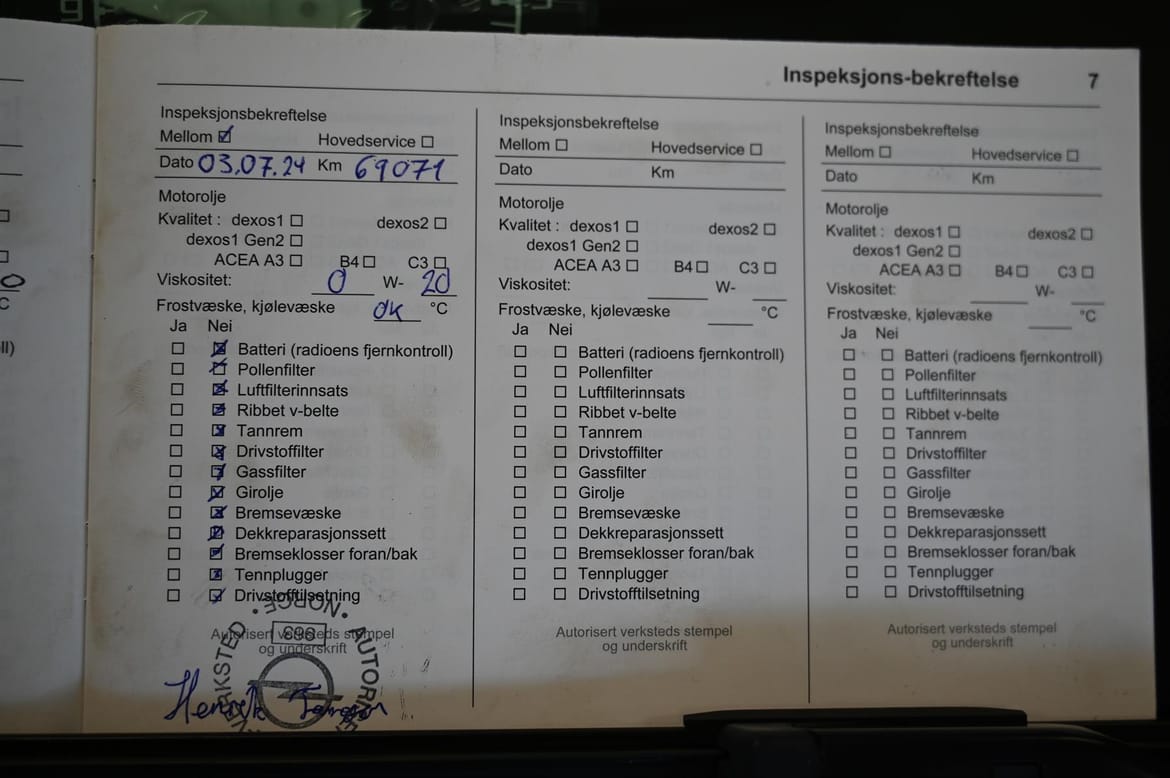 Inspeksjons-bekreftelse 7
Inspeksjonsbekreftelse
Mellom ☑ Hovedservice ☐
Dato 03.07.24 Km 69071
Motorolje
Kvalitet : dexos1 ☐ dexos2 ☐
dexos1 Gen2 ☐
ACEA A3 ☐ B4 ☐ C3 ☐
Viskositet: 0 W- 20
Frostvæske, kjølevæske ok °C
Ja Nei
☐ ☒ Batteri (radioens fjernkontroll)
☐ ☒ Pollenfilter
☐ ☒ Luftfilterinnsats
☐ ☒ Ribbet v-belte
☐ ☒ Tannrem
☐ ☒ Drivstoffilter
☐ ☒ Gassfilter
☐ ☒ Girolje
☐ ☒ Bremsevæske
☐ ☒ Dekkreparasjonssett
☐ ☒ Bremseklosser foran/bak
☐ ☒ Tennplugger
☐ ☒ Drivstofftilsetning
Autorisert verksteds stempel
og underskrift
VERKSTED • NORGE •
Henrik
Inspeksjonsbekreftelse
Mellom ☐ Hovedservice ☐
Dato Km
Motorolje
Kvalitet : dexos1 ☐ dexos2 ☐
dexos1 Gen2 ☐
ACEA A3 ☐ B4 ☐ C3 ☐
Viskositet: W-
Frostvæske, kjølevæske °C
Ja Nei
☐ ☐ Batteri (radioens fjernkontroll)
☐ ☐ Pollenfilter
☐ ☐ Luftfilterinnsats
☐ ☐ Ribbet v-belte
☐ ☐ Tannrem
☐ ☐ Drivstoffilter
☐ ☐ Gassfilter
☐ ☐ Girolje
☐ ☐ Bremsevæske
☐ ☐ Dekkreparasjonssett
☐ ☐ Bremseklosser foran/bak
☐ ☐ Tennplugger
☐ ☐ Drivstofftilsetning
Autorisert verksteds stempel
og underskrift
Inspeksjonsbekreftelse
Mellom ☐ Hovedservice ☐
Dato Km
Motorolje
Kvalitet : dexos1 ☐ dexos2 ☐
dexos1 Gen2 ☐
ACEA A3 ☐ B4 ☐ C3 ☐
Viskositet: W-
Frostvæske, kjølevæske °C
Ja Nei
☐ ☐ Batteri (radioens fjernkontroll)
☐ ☐ Pollenfilter
☐ ☐ Luftfilterinnsats
☐ ☐ Ribbet v-belte
☐ ☐ Tannrem
☐ ☐ Drivstoffilter
☐ ☐ Gassfilter
☐ ☐ Girolje
☐ ☐ Bremsevæske
☐ ☐ Dekkreparasjonssett
☐ ☐ Bremseklosser foran/bak
☐ ☐ Tennplugger
☐ ☐ Drivstofftilsetning
Autorisert verksteds stempel
og underskrift